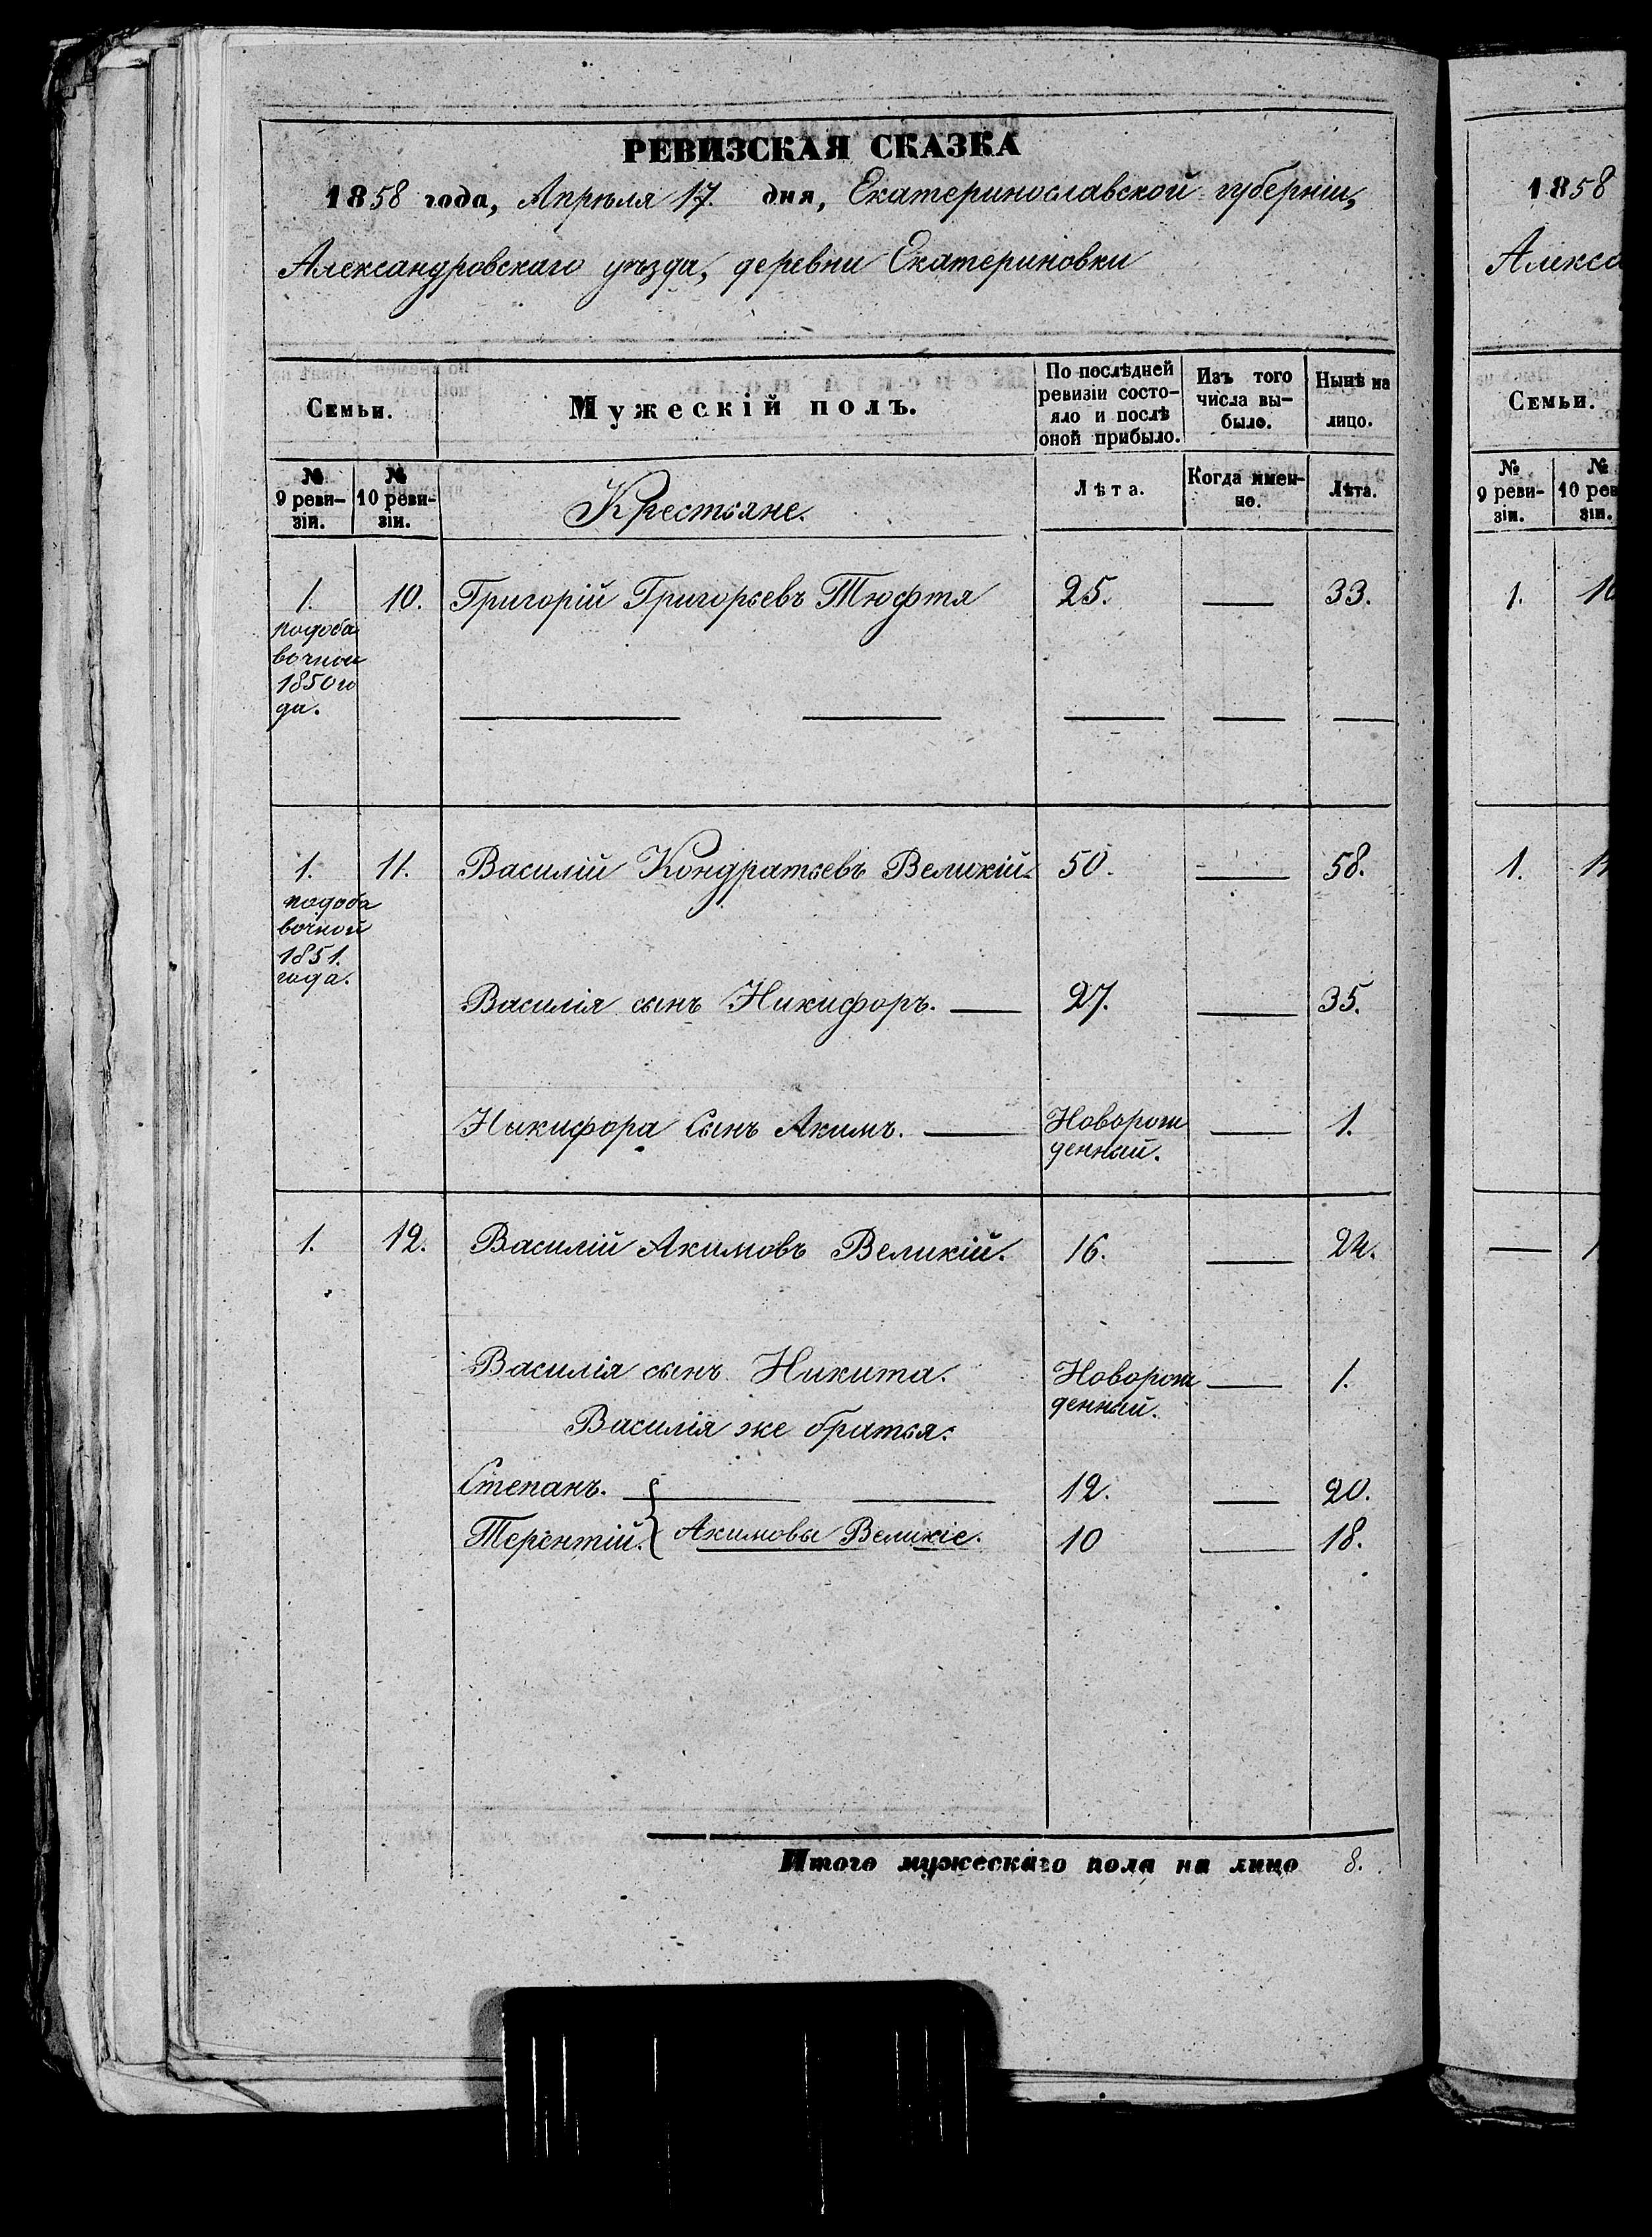 РЕВИЗСКАЯ СКАЗКА
1858 года, Апрѣля 17. дня, Екатеринославской губерніи,
Александровскаго уѣзда, деревни Екатериновки
Семьи. Мужескій полъ. По послѣдней ревизіи состо-яло и послѣ оной прибыло. Изъ того числа вы-было. Нынѣ на лицо.
№ 9 реви-зіи. № 10 реви-зіи. Крестьяне. Лѣта. Когда имен-но. Лѣта.
1. 10. Григорій Григорьевъ Тюфтя 25. — 33.
подоба
вочной
1850 го
да.
1. 11. Василій Кондратьевъ Великій. 50. — 58.
подоба
вочной
1851.
года.
Василія сынъ Никифоръ. — 27. — 35.
Никифора Сынъ Акимъ. — Новорож — 1.
денный.
1. 12. Василій Акимовъ Великій. 16. — 24.
Василія сынъ Никита. Новорож — 1.
денный.
Василія же братья:
Степанъ. 12. — 20.
Терентій. } Акимовы Великіе. 10 — 18.
Итого мужескаго пола на лицо 8.
1858
Семьи.
№ 9 реви-зіи. №
1.
1.